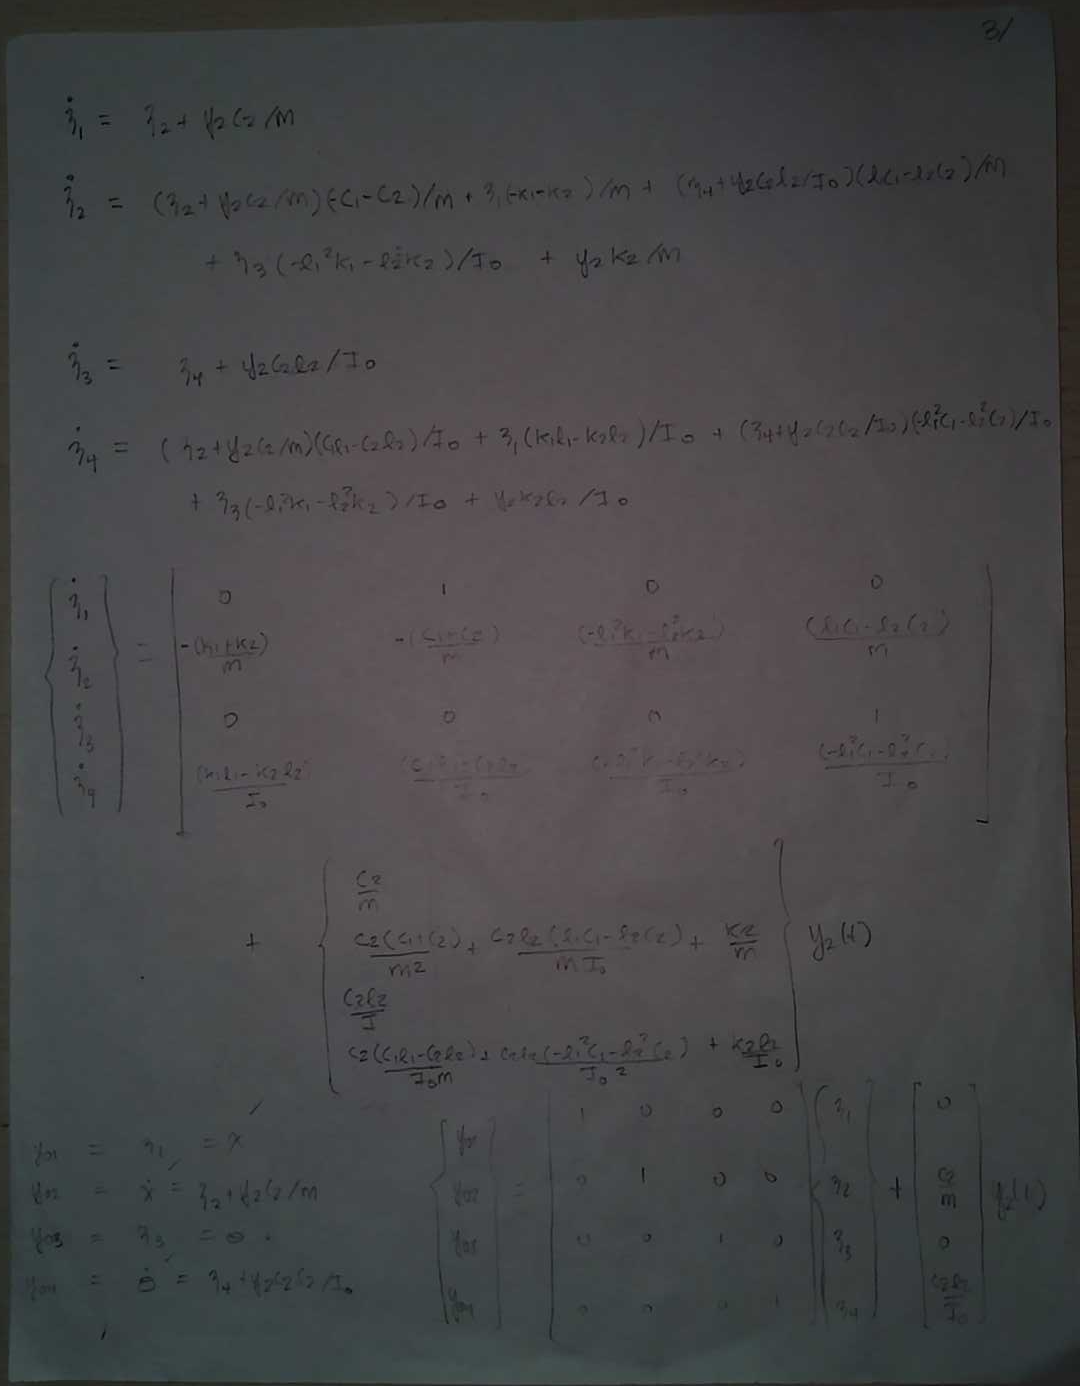 3/
ż₁ = z₂ + y₂c₂/m
ż₂ = (z₂ + y₂c₂/m)(-c₁-c₂)/m + z₁(-k₁-k₂)/m + (z₄ + y₂c₂l₂/I₀)(l₁c₁-l₂c₂)/m
+ z₃(-l₁²k₁ - l₂²k₂)/I₀ + y₂k₂/m
ż₃ = z₄ + y₂c₂l₂/I₀
ż₄ = (z₂ + y₂c₂/m)(c₁l₁-c₂l₂)/I₀ + z₁(k₁l₁-k₂l₂)/I₀ + (z₄ + y₂c₂l₂/I₀)(-l₁²c₁-l₂²c₂)/I₀
+ z₃(-l₁²k₁-l₂²k₂)/I₀ + y₂k₂l₂/I₀
{ż₁ ż₂ ż₃ ż₄} =
0 1 0 0
-(k₁+k₂)/m -(c₁+c₂)/m (-l₁²k₁-l₂²k₂)/m (l₁c₁-l₂c₂)/m
0 0 0 1
(k₁l₁-k₂l₂)/I₀ (c₁l₁-c₂l₂)/I₀ (-l₁²k₁-l₂²k₂)/I₀ (-l₁²c₁-l₂²c₂)/I₀
+ { c₂/m
c₂(c₁+c₂)/m² + c₂l₂(l₁c₁-l₂c₂)/mI₀ + k₂/m
c₂l₂/I
c₂(c₁l₁-c₂l₂)/I₀m + c₂l₂(-l₁²c₁-l₂²c₂)/I₀² + k₂l₂/I₀ } y₂(t)
y₀₁ = z₁ = x
y₀₂ = ẋ = z₂ + y₂c₂/m
y₀₃ = z₃ = θ
y₀₄ = θ̇ = z₄ + y₂c₂l₂/I₀
{y₀₁ y₀₂ y₀₃ y₀₄} =
1 0 0 0
0 1 0 0
0 0 1 0
0 0 0 1
{z₁ z₂ z₃ z₄} + [0 c₂/m 0 c₂l₂/I₀] y₂(t)